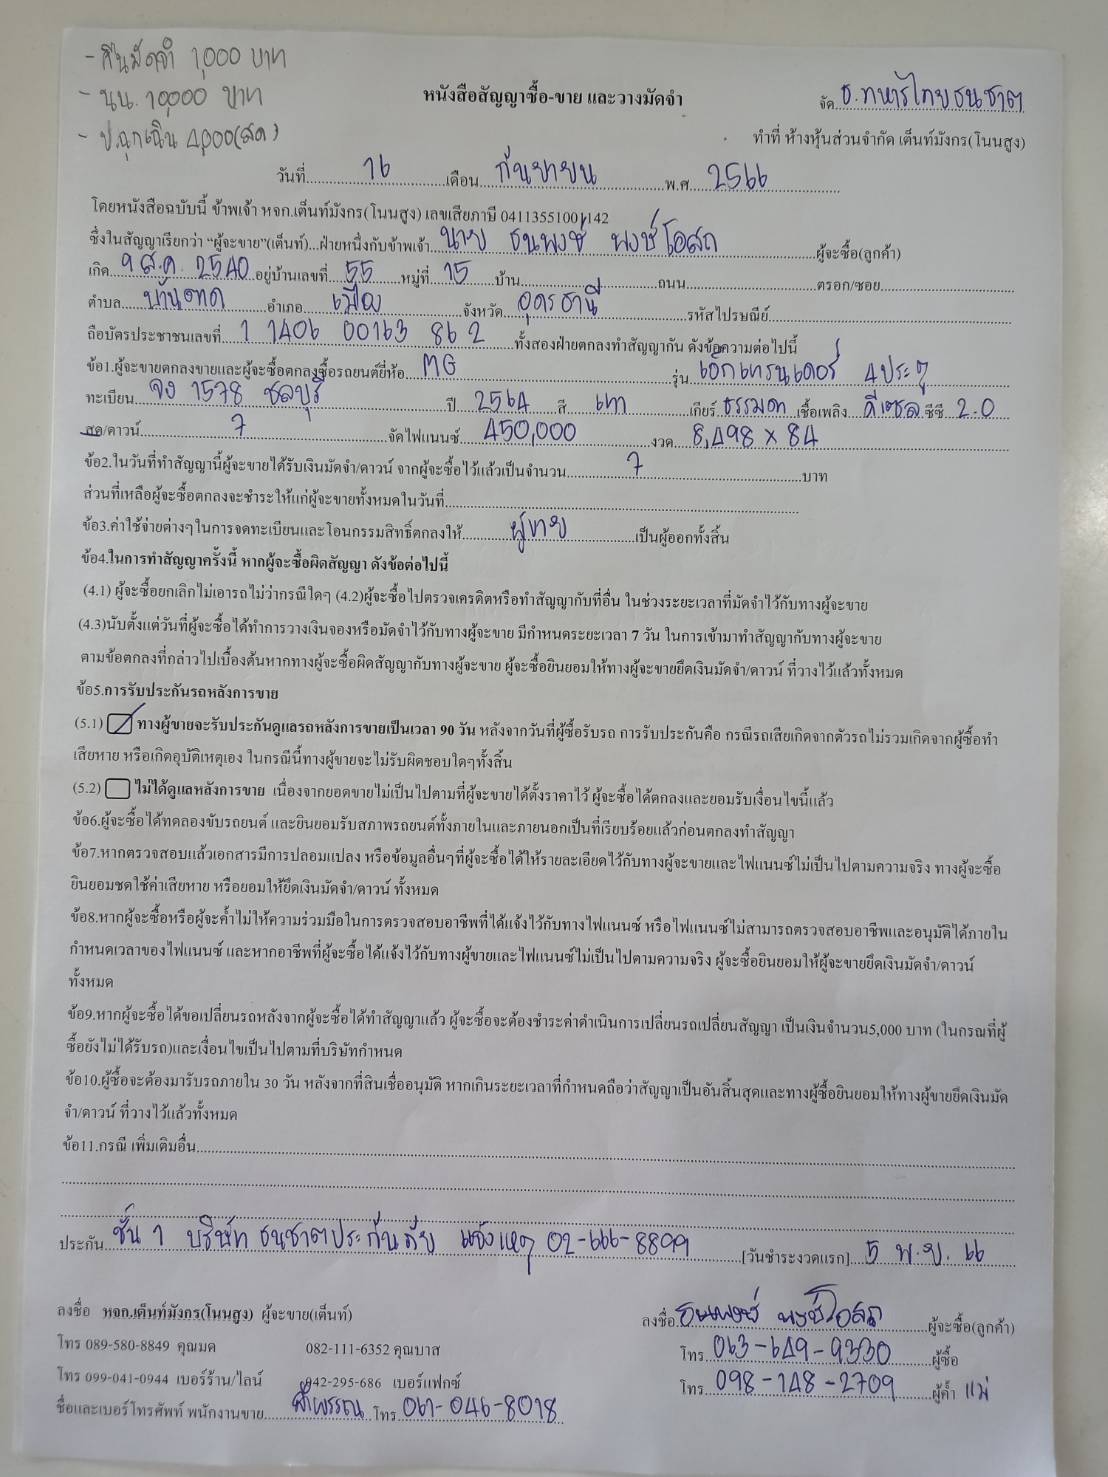 - คืนมัดจำ 1,000 บาท
- นน. 10,000 บาท
- ป.ฉุกเฉิน 4,000(สด)
หนังสือสัญญาซื้อ-ขาย และวางมัดจำ
จัด ธ.ทหารไทยธนชาต
ทำที่ ห้างหุ้นส่วนจำกัด เต็นท์มังกร(โนนสูง)
วันที่ 16 เดือน กันยายน พ.ศ. 2566
โดยหนังสือฉบับนี้ ข้าพเจ้า หจก.เต็นท์มังกร(โนนสูง) เลขเสียภาษี 0411355100142
ซึ่งในสัญญาเรียกว่า "ผู้จะขาย"(เต็นท์)...ฝ่ายหนึ่งกับข้าพเจ้า นาย ธนพงษ์ พงษ์โอสถ ผู้จะซื้อ(ลูกค้า)
เกิด 9 ส.ค. 2540 อยู่บ้านเลขที่ 55 หมู่ที่ 15 บ้าน ถนน ตรอก/ซอย
ตำบล บ้านตาด อำเภอ เมือง จังหวัด อุดรธานี รหัสไปรษณีย์
ถือบัตรประชาชนเลขที่ 1 1406 00163 86 2 ทั้งสองฝ่ายตกลงทำสัญญากัน ดังข้อความต่อไปนี้
ข้อ1.ผู้จะขายตกลงขายและผู้จะซื้อตกลงซื้อรถยนต์ยี่ห้อ MG รุ่น เอ็กเทรนเดอร์ 4ประตู
ทะเบียน จง 1578 ชลบุรี ปี 2564 สี เทา เกียร์ ธรรมดา เชื้อเพลิง ดีเซล ซีซี 2.0
สด/ดาวน์ ? จัดไฟแนนซ์ 450,000 งวด 8,498 x 84
ข้อ2.ในวันที่ทำสัญญานี้ผู้จะขายได้รับเงินมัดจำ/ดาวน์ จากผู้จะซื้อไว้แล้วเป็นจำนวน ? บาท
ส่วนที่เหลือผู้จะซื้อตกลงจะชำระให้แก่ผู้จะขายทั้งหมดในวันที่
ข้อ3.ค่าใช้จ่ายต่างๆในการจดทะเบียนและโอนกรรมสิทธิ์ตกลงให้ ผู้ขาย เป็นผู้ออกทั้งสิ้น
ข้อ4.ในการทำสัญญาครั้งนี้ หากผู้จะซื้อผิดสัญญา ดังข้อต่อไปนี้
(4.1) ผู้จะซื้อยกเลิกไม่เอารถไม่ว่ากรณีใดๆ (4.2)ผู้จะซื้อไปตรวจเครดิตหรือทำสัญญากับที่อื่น ในช่วงระยะเวลาที่มัดจำไว้กับทางผู้จะขาย
(4.3)นับตั้งแต่วันที่ผู้จะซื้อได้ทำการวางเงินจองหรือมัดจำไว้กับทางผู้จะขาย มีกำหนดระยะเวลา 7 วัน ในการเข้ามาทำสัญญากับทางผู้จะขาย
ตามข้อตกลงที่กล่าวไปเบื้องต้นหากทางผู้จะซื้อผิดสัญญากับทางผู้จะขาย ผู้จะซื้อยินยอมให้ทางผู้จะขายยึดเงินมัดจำ/ดาวน์ ที่วางไว้แล้วทั้งหมด
ข้อ5.การรับประกันรถหลังการขาย
(5.1) ทางผู้ขายจะรับประกันดูแลรถหลังการขายเป็นเวลา 90 วัน หลังจากวันที่ผู้ซื้อรับรถ การรับประกันคือ กรณีรถเสียเกิดจากตัวรถไม่รวมเกิดจากผู้ซื้อทำ
เสียหาย หรือเกิดอุบัติเหตุเอง ในกรณีนี้ทางผู้ขายจะไม่รับผิดชอบใดๆทั้งสิ้น
(5.2) ไม่ได้ดูแลหลังการขาย เนื่องจากยอดขายไม่เป็นไปตามที่ผู้จะขายได้ตั้งราคาไว้ ผู้จะซื้อได้ตกลงและยอมรับเงื่อนไขนี้แล้ว
ข้อ6.ผู้จะซื้อได้ทดลองขับรถยนต์ และยินยอมรับสภาพรถยนต์ทั้งภายในและภายนอกเป็นที่เรียบร้อยแล้วก่อนตกลงทำสัญญา
ข้อ7.หากตรวจสอบแล้วเอกสารมีการปลอมแปลง หรือข้อมูลอื่นๆที่ผู้จะซื้อได้ให้รายละเอียดไว้กับทางผู้จะขายและไฟแนนซ์ไม่เป็นไปตามความจริง ทางผู้จะซื้อ
ยินยอมชดใช้ค่าเสียหาย หรือยอมให้ยึดเงินมัดจำ/ดาวน์ ทั้งหมด
ข้อ8.หากผู้จะซื้อหรือผู้จะค้ำไม่ให้ความร่วมมือในการตรวจสอบอาชีพที่ได้แจ้งไว้กับทางไฟแนนซ์ หรือไฟแนนซ์ไม่สามารถตรวจสอบอาชีพและอนุมัติได้ภายใน
กำหนดเวลาของไฟแนนซ์ และหากอาชีพที่ผู้จะซื้อได้แจ้งไว้กับทางผู้ขายและไฟแนนซ์ไม่เป็นไปตามความจริง ผู้จะซื้อยินยอมให้ผู้จะขายยึดเงินมัดจำ/ดาวน์
ทั้งหมด
ข้อ9.หากผู้จะซื้อได้ขอเปลี่ยนรถหลังจากผู้จะซื้อได้ทำสัญญาแล้ว ผู้จะซื้อจะต้องชำระค่าดำเนินการเปลี่ยนรถเปลี่ยนสัญญา เป็นเงินจำนวน5,000 บาท (ในกรณีที่ผู้
ซื้อยังไม่ได้รับรถ)และเงื่อนไขเป็นไปตามที่บริษัทกำหนด
ข้อ10.ผู้ซื้อจะต้องมารับรถภายใน 30 วัน หลังจากที่สินเชื่ออนุมัติ หากเกินระยะเวลาที่กำหนดถือว่าสัญญาเป็นอันสิ้นสุดและทางผู้ซื้อยินยอมให้ทางผู้ขายยึดเงินมัด
จำ/ดาวน์ ที่วางไว้แล้วทั้งหมด
ข้อ11.กรณี เพิ่มเติมอื่น
ประกัน ชั้น 1 บริษัท ธนชาตประกันภัย แจ้งเหตุ 02-666-8899 [วันชำระงวดแรก] 5 พ.ย. 66
ลงชื่อ หจก.เต็นท์มังกร(โนนสูง) ผู้จะขาย(เต็นท์) ลงชื่อ ธนพงษ์ พงษ์โอสถ ผู้จะซื้อ(ลูกค้า)
โทร 089-580-8849 คุณมด 082-111-6352 คุณบาส โทร 063-649-9330 ผู้ซื้อ
โทร 099-041-0944 เบอร์ร้าน/ไลน์ 042-295-686 เบอร์แฟกซ์ โทร 098-148-2709 ผู้ค้ำ แม่
ชื่อและเบอร์โทรศัพท์ พนักงานขาย โทร 061-046-8018